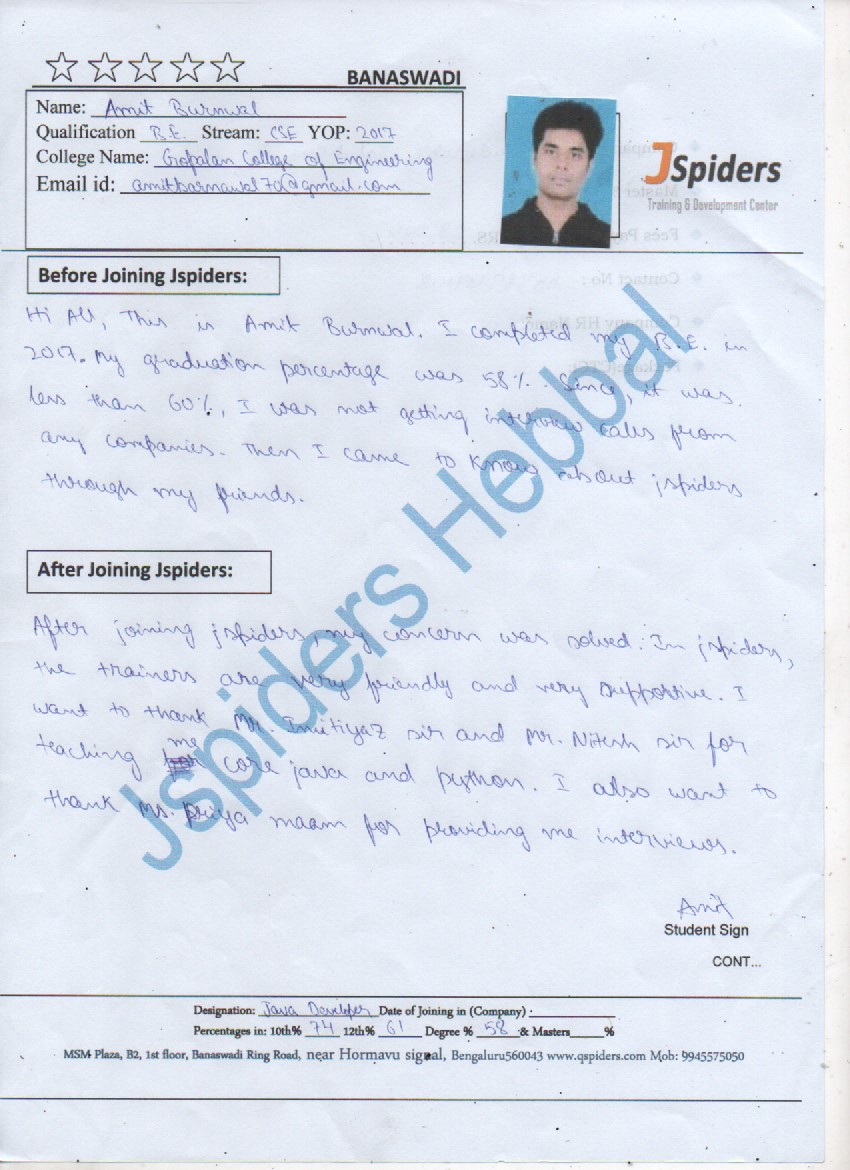 BANASWADI
Name: Amit Burnwal
Qualification B.E. Stream: CSE YOP: 2017
College Name: Gopalan College of Engineering
Email id: amitbarnawal70@gmail.com
JSpiders
Training & Development Center
Before Joining Jspiders:
Hi All, This is Amit Burnwal. I completed my B.E. in
2017. My graduation percentage was 58%. Since, it was
less than 60%, I was not getting interview calls from
any companies. Then I came to know about jspiders
through my friends.
After Joining Jspiders:
After joining jspiders, my concern was solved. In jspiders,
the trainers are very friendly and very supportive. I
want to thank Mr. Imitiyaz sir and Mr. Nitesh sir for
teaching me core java and python. I also want to
thank Ms. Priya maam for providing me interviews.
Jspiders Hebbal
Amit
Student Sign
CONT...
Designation: Java Developer Date of Joining in (Company) :
Percentages in: 10th% 74 12th% 61 Degree % 58 & Masters %
MSM Plaza, B2, 1st floor, Banaswadi Ring Road, near Hormavu signal, Bengaluru560043 www.qspiders.com Mob: 9945575050